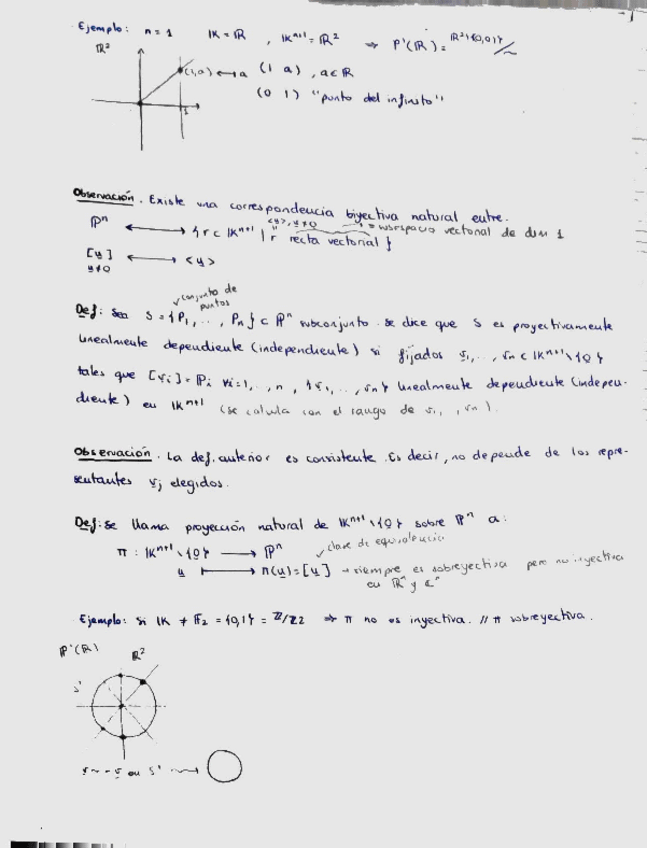 Ejemplo: n = 1 IK = IR , IKⁿ⁺¹ = IR² ⇒ P¹(IR) = IR²\{(0,0)}/~
IR²
(1,a) ↔ a (1 a) , a ∈ IR
(0 1) "punto del infinito"
1
Observación. Existe una correspondencia biyectiva natural entre.
<u>, u≠0 → subespacio vectorial de dim 1
IPⁿ ⟷ { r ⊂ IKⁿ⁺¹ | r recta vectorial }
[u] ⟷ <u>
u≠0
conjunto de puntos
Def: Sea S = {P₁, .., Pₙ} ⊂ IPⁿ subconjunto. se dice que S es proyectivamente
linealmente dependiente (independiente) si fijados v₁, .., vₙ ∈ IKⁿ⁺¹\{0}
tales que [vᵢ] = Pᵢ ∀i=1, .., n , {v₁, .., vₙ} linealmente dependiente (indepen-
diente) en IKⁿ⁺¹ (se calcula con el rango de v₁, , vₙ).
Observación. La def. anterior es consistente. Es decir, no depende de los repre-
sentantes vⱼ elegidos.
Def: se llama proyección natural de IKⁿ⁺¹\{0} sobre IPⁿ a:
π : IKⁿ⁺¹\{0} ⟶ IPⁿ clase de equivalencia
u ⟼ π(u) = [u] → siempre es sobreyectiva pero no inyectiva
en IRⁿ y ℂⁿ
Ejemplo: si IK ≠ IF₂ = {0,1} = ℤ/ℤ2 ⇒ π no es inyectiva. // π sobreyectiva.
IP¹(IR) IR²
S¹
v ~ -v en S¹ ⟶